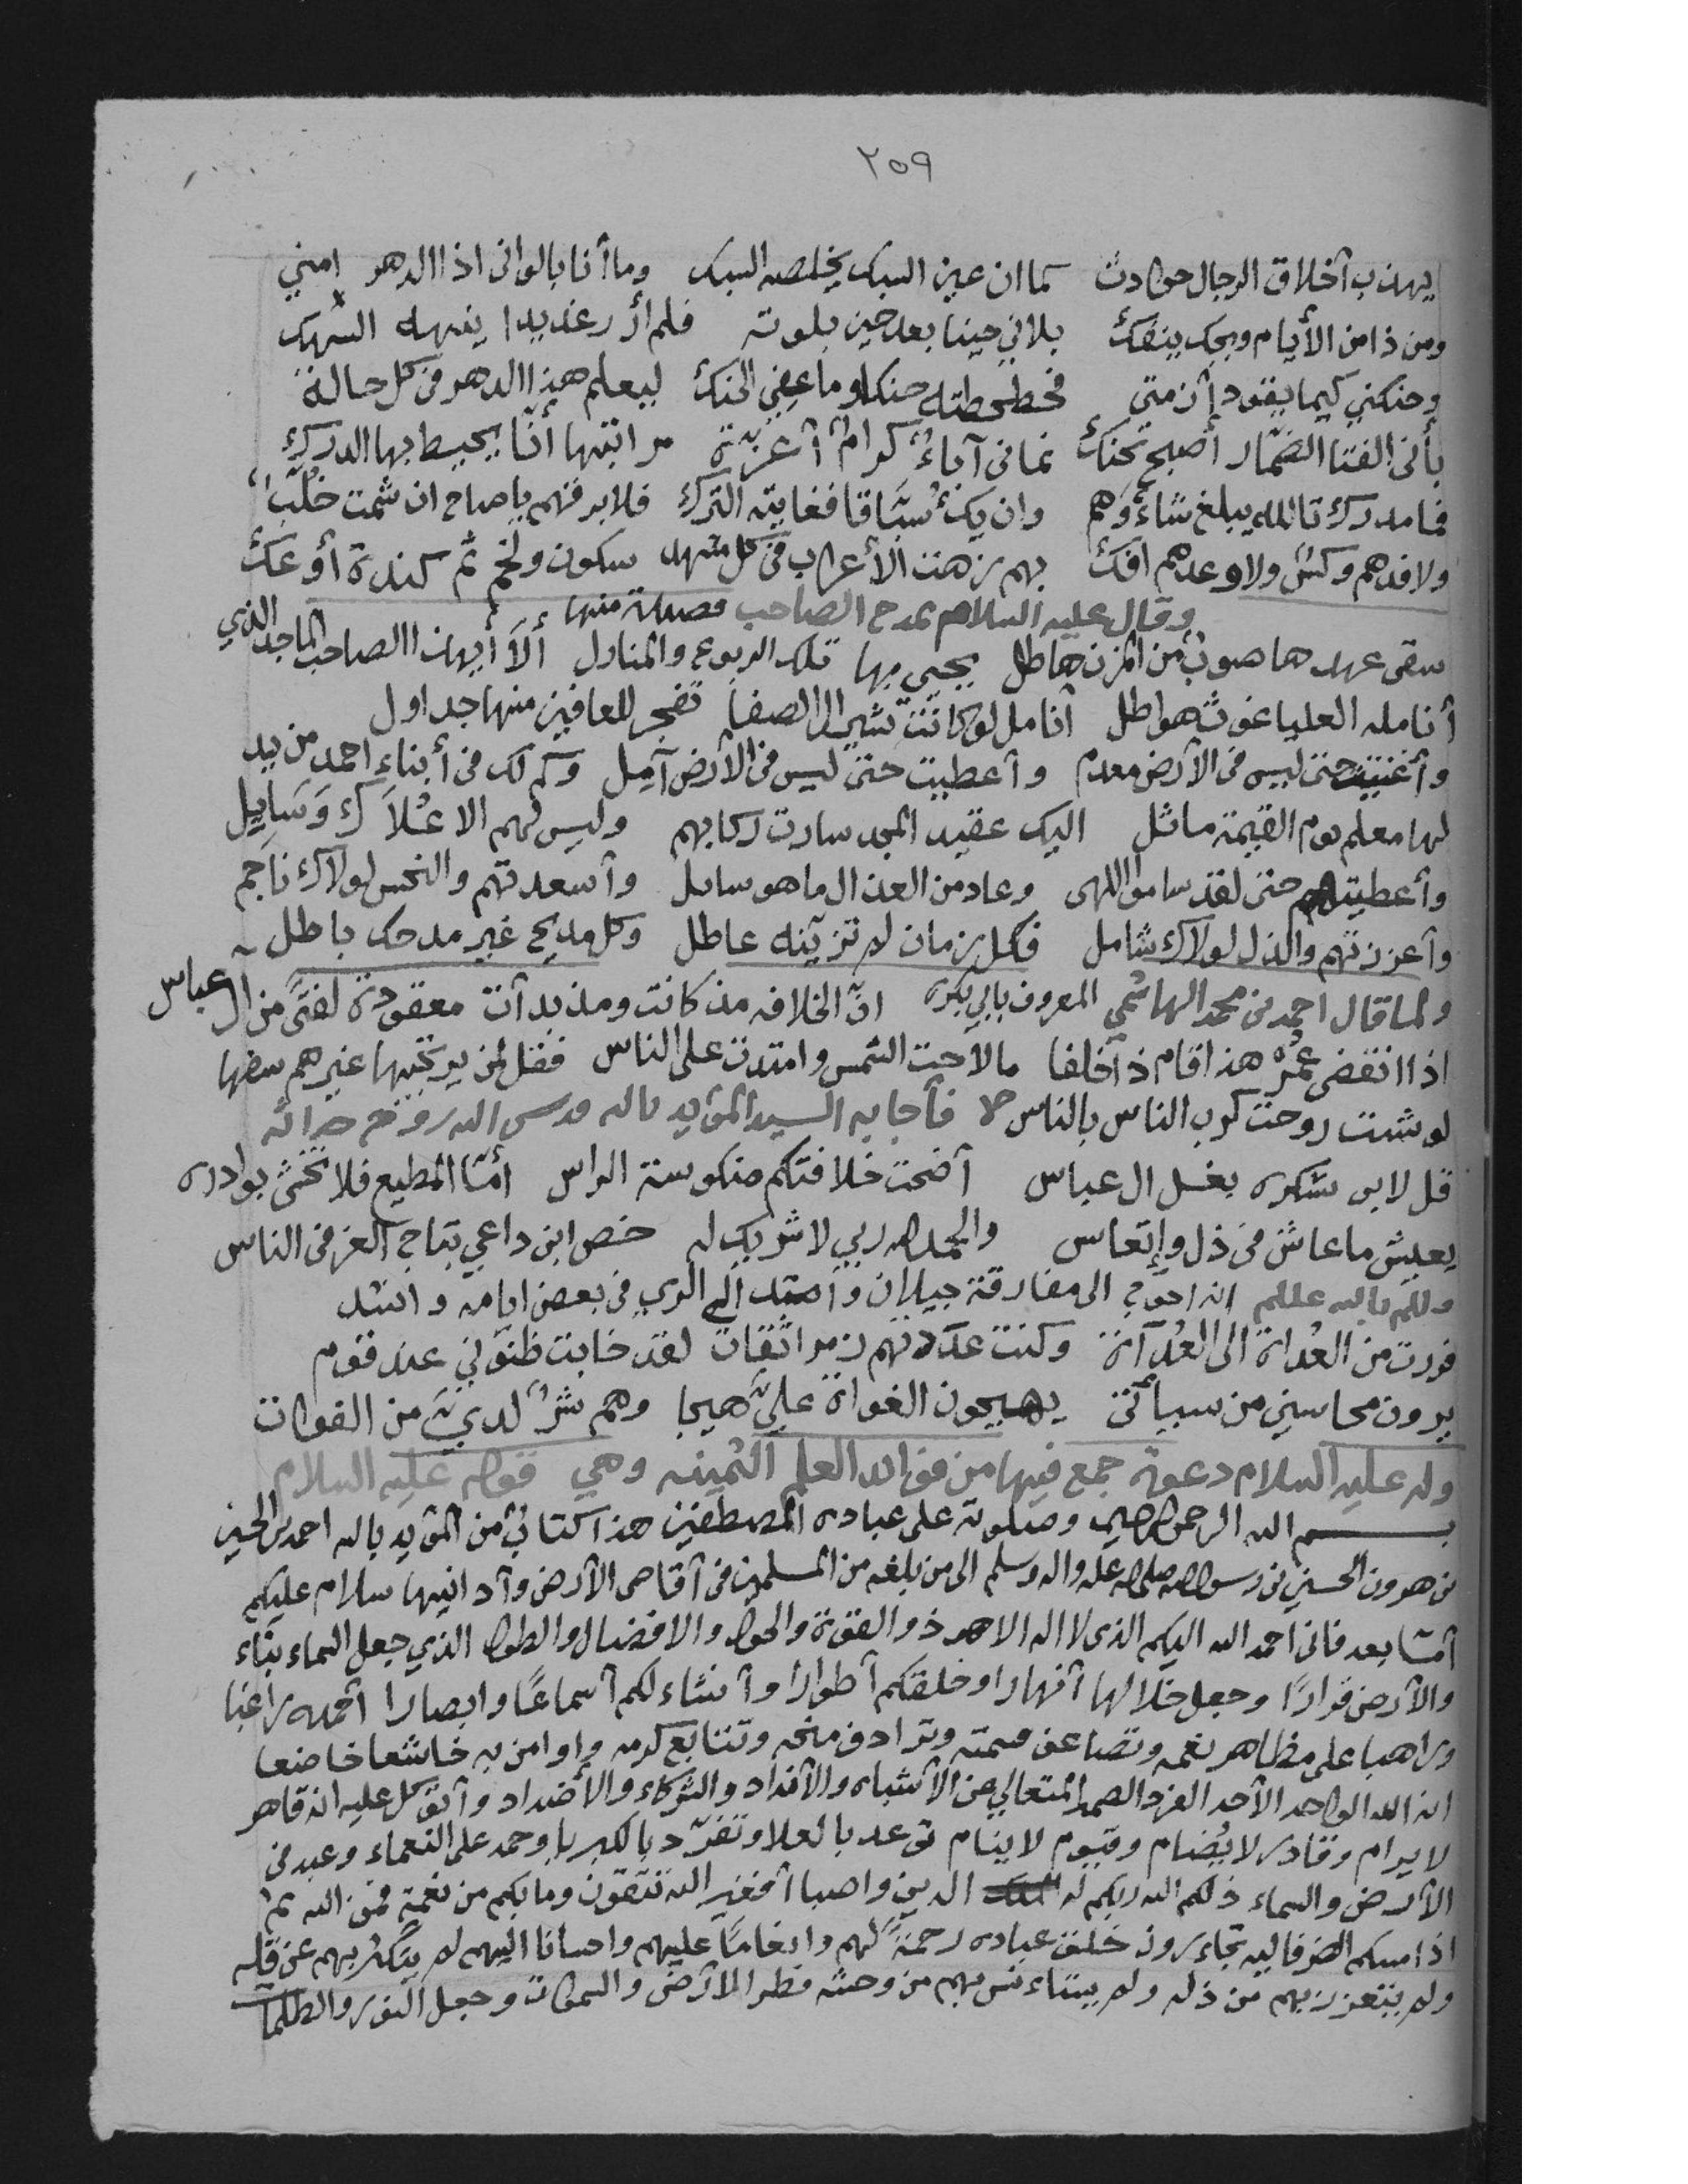 ٢٥٩
يهذب أخلاق الرجال حوادث كما ان عين السبك يخلصه السبك وما أنا بالوانى اذا الدهر امني
ومن ذا من الأيام ويحك ينفك بلاني حينا بعد حين بلوته فلم أر رعديدا ينهله السهك
وحنكني كيما يقود أزمتي فحطحطته حنكا وما عضني الحنك ليعلم هذا الدهر فى كل حالة
بأنى الفتا الضمار أصبح تحنك نمانى آباءٌ كرام أعزة مراتبها أنّا يحيط بها الدرك
فما مدرك تالله يبلغ شاءوهم وان يك سبّاقا فغايته الترك فلا برقهم ياصاح ان شمت خلّب
ولا فدهم وكس ولا وعدهم افك بهم زهت الأعراب فى كل مشهد سكون ولخم ثم كندة أو عك
وقال عليه السلام يمدح الصاحب منها
سقى عهدها صوب من المزن هاطل يحيى بها تلك الربوع والمنازل ألا أيهذا الصاحب الماجد الذي
أنامله العليا غوث هواطل أنامل لو كانت تشير الى الصفا تفجر للعافين منها جداول
وأغنيت حتى ليس فى الأرض معدم وأعطيت حتى ليس فى الأرض آمل وكم لك فى أبناء احمد من يد
لها معلم يوم القيمة ماثل اليك عقيد المجد سارت ركابهم وليس لهم الا عُلاَك وَسَايِل
وأعطيتهم حتى لقد ساموا اللهى وعاد من العذال ما هو سائل وأسعدتهم والنحس لولاك ناجم
وأعززتهم والذل لولاك شامل فكل زمان لم تزينه عاطل وكل مديح غير مدحك باطل
ولما قال احمد بن محمد الهاشمي المعروف بابي انّ الخلافه مذ كانت ومذ بدأت معقودة لفتىً من ال عباس
اذا انقضى عُمْرُ هذا قام ذا خلفا مالاحت الشمس وامتدت على الناس فقل لمن يرتجيها غيرهم سفها
لو شئت روحت كرب الناس بالناس فأجابه السيد المؤيد بالله قدس الله روحه
قل لابن يغسل ال عباس أضحت خلافتكم منكوسة الراس أمّا المطيع فلا تخشى بوادره
يعيش ما عاش فى ذل وإتعاس والحمد لله ربي لا شريك له خص ابن داعي بتاج العز فى الناس
انه احوج الى مفارقة جيلان وامتد الى الري فى بعض ايامه وانشد
فررت من العُداة الى العُدآة وكنت عدّدتهم زمر اثقات لقد خابت ظنوني عند قوم
يرون محاسني من سيآتى يهيجون الغواة عليّ هيجا وهم شرٌ لديّ من الغواة
وله عليه السلام دعوة جمع فيها من فوائد العلم الثمينه وهي قوله عليه السلام
بسم الله الرحمن الرحيم وصلوته على عباده المصطفين هذا كتابٌ من المؤيد بالله احمد بن الحسين
بن هرون الحسيني بن رسول الله صلى الله عليه واله وسلم الى من بلغه من المسلمين فى أقاصى الأرض وأدانيها سلام عليكم
أمّا بعد فانى احمد الله اليكم الذى لا اله الا هو ذو القوة والحول والافضال والطول الذي جعل السماء بناء
والأرض قرارًا وجعل خلالها أنهارا وخلقكم أطوارا وأنشاء لكم أسماعًا وابصارا أحمده راغبا
وراهبا على مظاهر نعمه وتضاعف وترادف منحه وتتابع كرمه واوامن به خاشعا خاضعا
انه الله الواحد الأحد الفرد الصمد المتعالي عن الأشباه والأنداد والشركاء والأضداد وأتوكل عليه انه قاهر
لا يرام وقادر لا يُضام وقيوم لا ينام توحد بالعلا وتفرّد بالكبريا وحمد على النعماء وعبد فى
الأرض والسماء ذلكم الله ربكم له الدين واصبا أفغير الله تتقون وما بكم من نعمة فمن الله ثم
اذا مسكم الضر فاليه تجاءرون خلق عباده رحمةً لهم وانعامًا عليهم واحسانا اليهم لم يتكثر بهم عن قله
ولم يتعزز بهم من ذله ولم يستاءنس بهم من وحشه فطر الأرض والسموات وجعل النور والظلمات